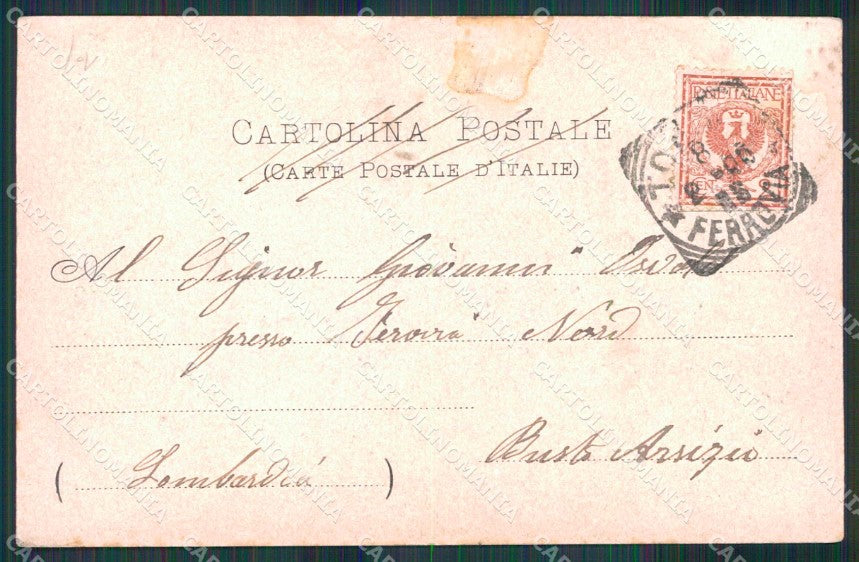 CARTOLINA POSTALE
(CARTE POSTALE D'ITALIE)
POSTE ITALIANE
CEN. 2
FERROVIA
Al Signor Giovanni
presso Ferovia Nord
Busto Arsizio
( Lombardia )
CARTOLINOMANIA